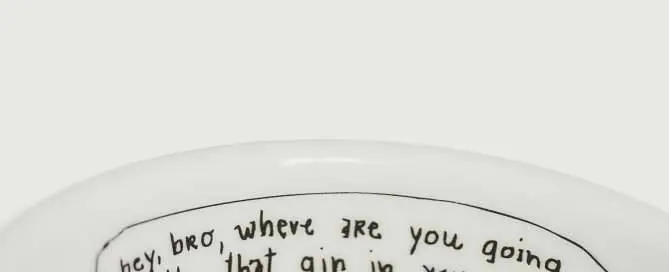 hey, bro, where are you going
that gin in